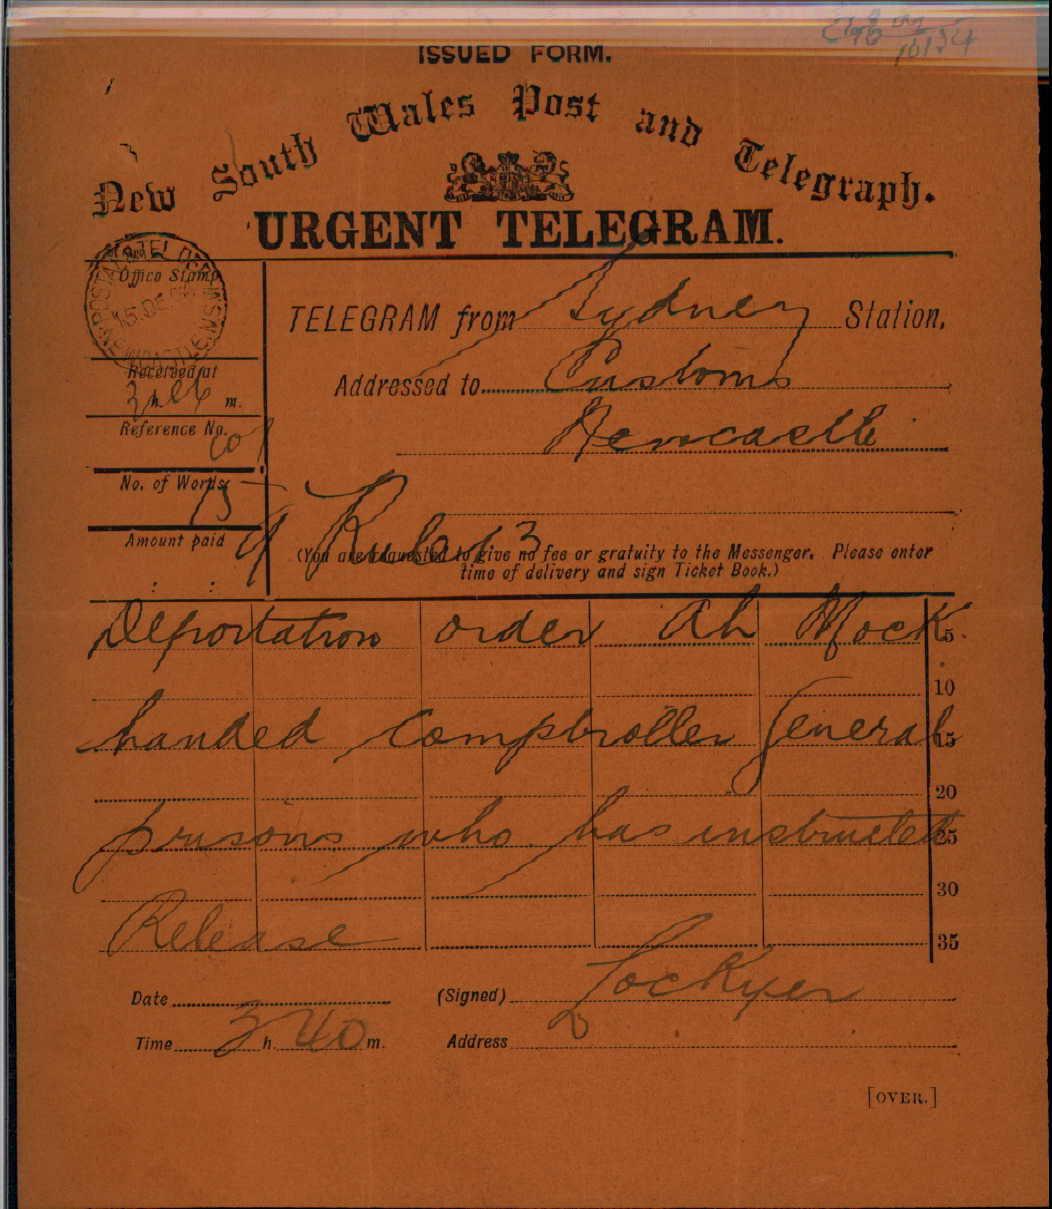 ISSUED FORM.
New South Wales Post and Telegraph.
URGENT TELEGRAM.
Office Stamp
TELEGRAM from Sydney Station,
Addressed to Customs
Newcastle
Received at
3 h. m.
Reference No.
No. of Words
15
Amount paid
Rules 3
(You are requested to give no fee or gratuity to the Messenger. Please enter
time of delivery and sign Ticket Book.)
Deportation order Ah Mock 5
10
handed Comptroller General 15
20
prisons who has instructed 25
30
Release 35
Date (Signed) Lockyer
Time 3 h. 40 m. Address
[OVER.]